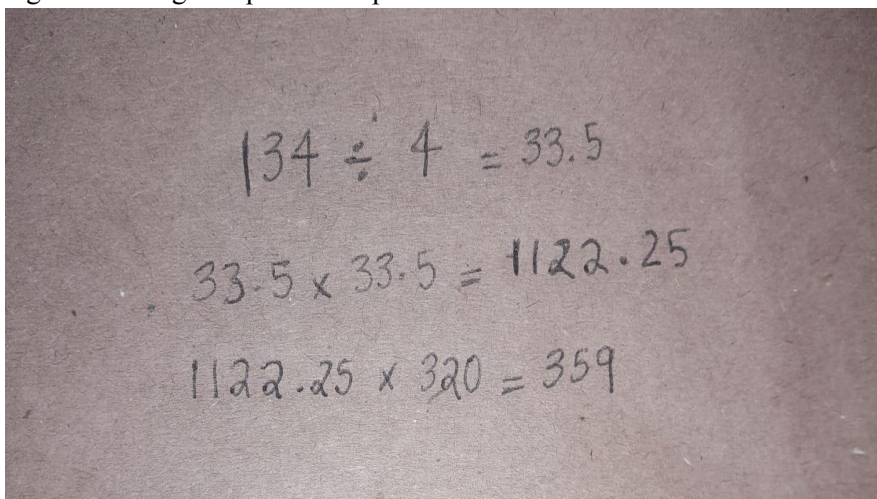 134 ÷ 4 = 33.5
33.5 x 33.5 = 1122.25
1122.25 x 320 = 359